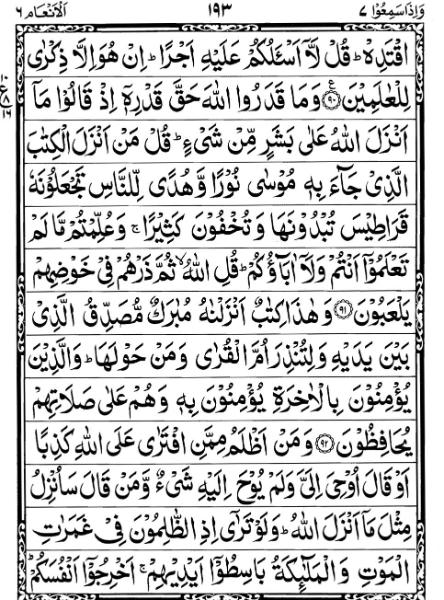 وَاِذَاسَمِعُوْا ٧ ١٩٣ اَلْاَنْعَام ٦
اقْتَدِهْ ؕ قُلْ لَّاۤ اَسْـَٔلُكُمْ عَلَيْهِ اَجْرًا ؕ اِنْ هُوَ اِلَّا ذِكْرٰى
لِلْعٰلَمِيْنَ ۝٩٠ وَمَا قَدَرُوا اللّٰهَ حَقَّ قَدْرِهٖۤ اِذْ قَالُوْا مَاۤ
اَنْزَلَ اللّٰهُ عَلٰى بَشَرٍ مِّنْ شَىْءٍ ؕ قُلْ مَنْ اَنْزَلَ الْكِتٰبَ
الَّذِىْ جَآءَ بِهٖ مُوْسٰى نُوْرًا وَّهُدًى لِّلنَّاسِ تَجْعَلُوْنَهٗ
قَرَاطِيْسَ تُبْدُوْنَهَا وَتُخْفُوْنَ كَثِيْرًا ۚ وَعُلِّمْتُمْ مَّا لَمْ
تَعْلَمُوْۤا اَنْتُمْ وَلَاۤ اٰبَآؤُكُمْ ؕ قُلِ اللّٰهُ ۙ ثُمَّ ذَرْهُمْ فِىْ خَوْضِهِمْ
يَلْعَبُوْنَ ۝٩١ وَهٰذَا كِتٰبٌ اَنْزَلْنٰهُ مُبٰرَكٌ مُّصَدِّقُ الَّذِىْ
بَيْنَ يَدَيْهِ وَلِتُنْذِرَ اُمَّ الْقُرٰى وَمَنْ حَوْلَهَا ؕ وَالَّذِيْنَ
يُؤْمِنُوْنَ بِالْاٰخِرَةِ يُؤْمِنُوْنَ بِهٖ وَهُمْ عَلٰى صَلَاتِهِمْ
يُحَافِظُوْنَ ۝٩٢ وَمَنْ اَظْلَمُ مِمَّنِ افْتَرٰى عَلَى اللّٰهِ كَذِبًا
اَوْ قَالَ اُوْحِىَ اِلَىَّ وَلَمْ يُوْحَ اِلَيْهِ شَىْءٌ وَّمَنْ قَالَ سَاُنْزِلُ
مِثْلَ مَاۤ اَنْزَلَ اللّٰهُ ؕ وَلَوْ تَرٰٓى اِذِ الظّٰلِمُوْنَ فِىْ غَمَرٰتِ
الْمَوْتِ وَالْمَلٰٓئِكَةُ بَاسِطُوْۤا اَيْدِيْهِمْ ۚ اَخْرِجُوْۤا اَنْفُسَكُمْ ؕ